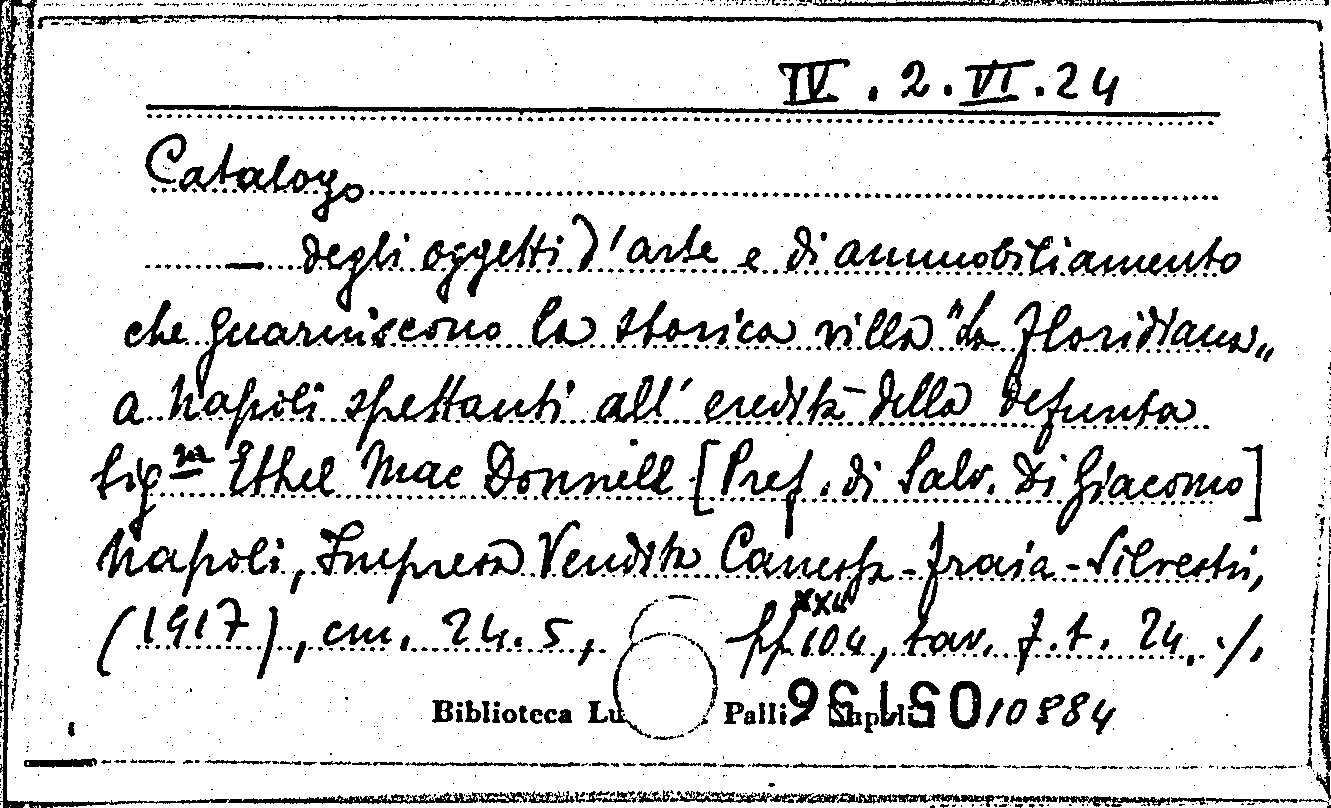 IV. 2. VI. 24
Catalogo
— degli oggetti d'arte e di ammobiliamento
che guarniscono la storica villa "La Floridiana„
a Napoli spettanti all' eredità della defunta
Sig.ra Ethel Mac Donnell [Pref. di Salv. Di Giacomo]
Napoli, Impresa Vendita Canessa-Fraia-Silvestri,
(1917), cm. 24.5, pp. XXII 104, tav. f.t. 24. ./.
Biblioteca Lu Palli Napoli 10884